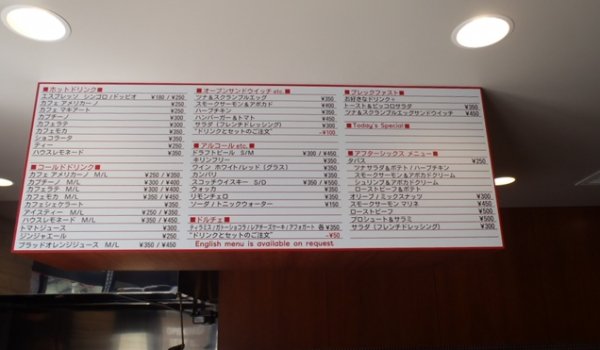 ■ホットドリンク■
エスプレッソ シンコロ/ドッピオ ¥180 / ¥250
カフェ アメリカーノ ¥250
カフェ マキアート ¥250
カプチーノ ¥300
カフェラテ ¥300
カフェモカ ¥350
ショコラータ ¥350
ティー ¥250
ハウスレモネード ¥350
■コールドドリンク■
カフェ アメリカーノ M/L ¥250 / ¥350
カプチーノ M/L ¥300 / ¥400
カフェラテ M/L ¥300 / ¥400
カフェモカ M/L ¥350 / ¥450
カフェシェケラート ¥350
アイスティー M/L ¥250 / ¥350
ハウスレモネード M/L ¥350 / ¥450
トマトジュース ¥300
ジンジャエール ¥250
ブラッドオレンジジュース M/L ¥350 / ¥450
■オープンサンドウイッチ etc.■
ツナ&スクランブルエッグ ¥350
スモークサーモン&アボカド ¥400
ハーブチキン ¥350
ハンバーガー&トマト ¥450
サラダ（フレンチドレッシング） ¥300
"ドリンクとセットのご注文" −¥100
■アルコール etc.■
ドラフトビール S/M ¥300 / ¥450
キリンフリー ¥350
ワイン ホワイト/レッド（グラス） ¥350
カンパリ ¥350
スコッチウイスキー S/D ¥350 / ¥550
ウォッカ ¥350
リモンチェロ ¥350
ソーダ/トニックウォーター ¥150
■ドルチェ■
ティラミス/ガトーショコラ/レアチーズケーキ/アフォガート 各¥350
"ドリンクとセットのご注文" −¥50
English menu is available on request
■ブレックファスト■
お好きなドリンク+
トースト&ピッコロサラダ ¥350
ツナ&スクランブルエッグサンドウイッチ ¥450
■Today's Special■
■アフターシックス メニュー■
タパス ¥250
ツナサラダ&ポテト / ハーブチキン
スモークサーモン&アボカドクリーム
シュリンプ&アボカドクリーム
ローストビーフ&ポテト
オリーブ / ミックスナッツ ¥300
スモークサーモン マリネ ¥450
ローストビーフ ¥500
プロシュート&サラミ ¥500
サラダ（フレンチドレッシング） ¥300